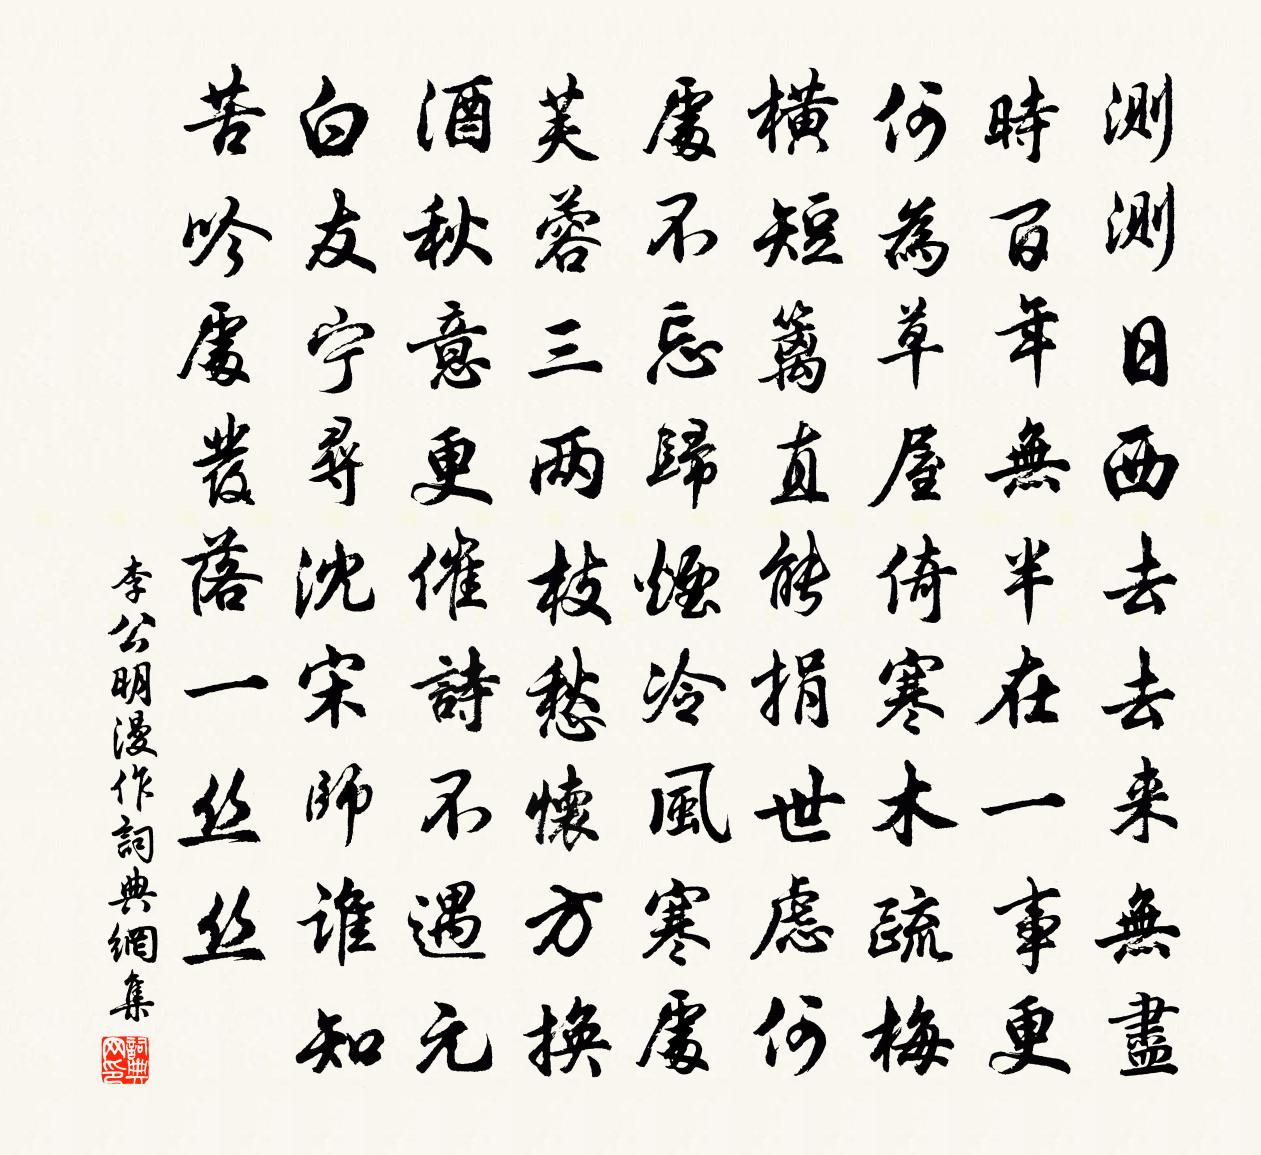 測測日西去去来無盡
時百年無半在一事更
何為草屋倚寒木疏梅
橫短籬直能捐世慮何
處不忘歸煙冷風寒處
芙蓉三两枝愁懷方換
酒秋意更催詩不遇元
白友宁尋沈宋師誰知
苦吟處發落一丝丝
李公明漫作詞典網集
詞典网印